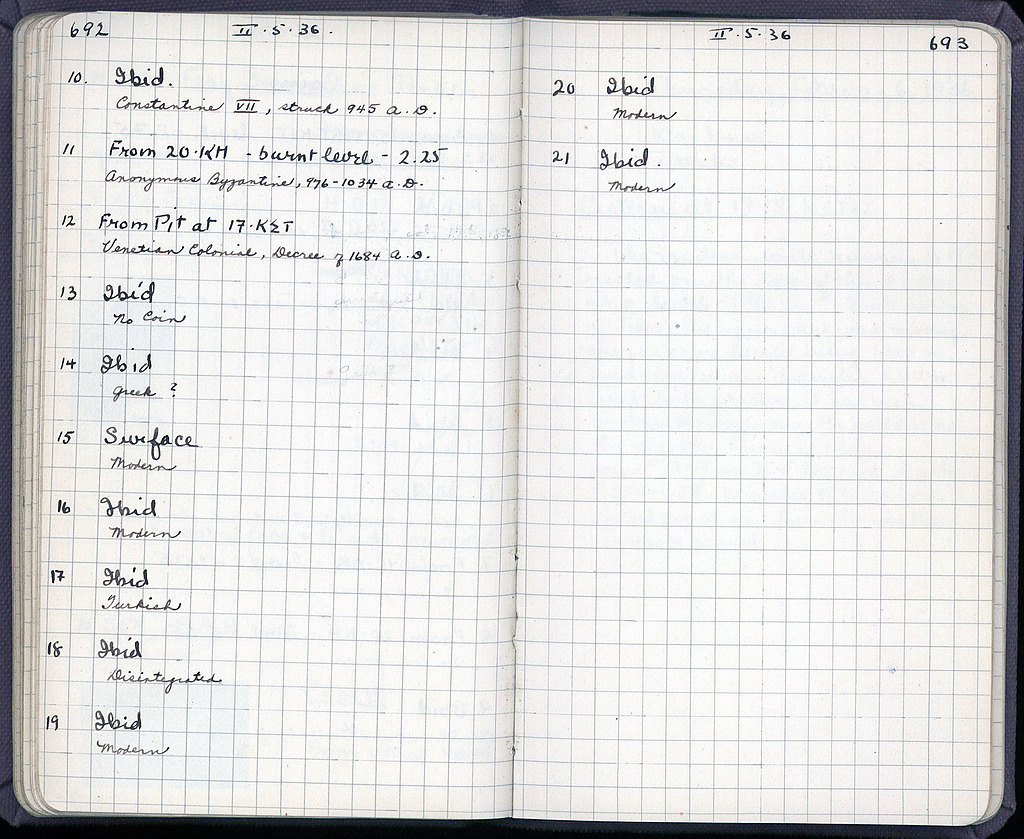 692
II · 5 · 36 .
10. Ibid.
Constantine VII, struck 945 A.D.
11 From 20·KH - burnt level - 2.25
Anonymous Byzantine, 976-1034 A.D.
12 From Pit at 17·KΣT
Venetian Colonial, Decree of 1684 A.D.
13 Ibid
No Coin
14 Ibid
Greek ?
15 Surface
Modern
16 Ibid
Modern
17 Ibid
Turkish
18 Ibid
Disintegrated
19 Ibid
Modern
II · 5 · 36
693
20 Ibid
Modern
21 Ibid.
Modern